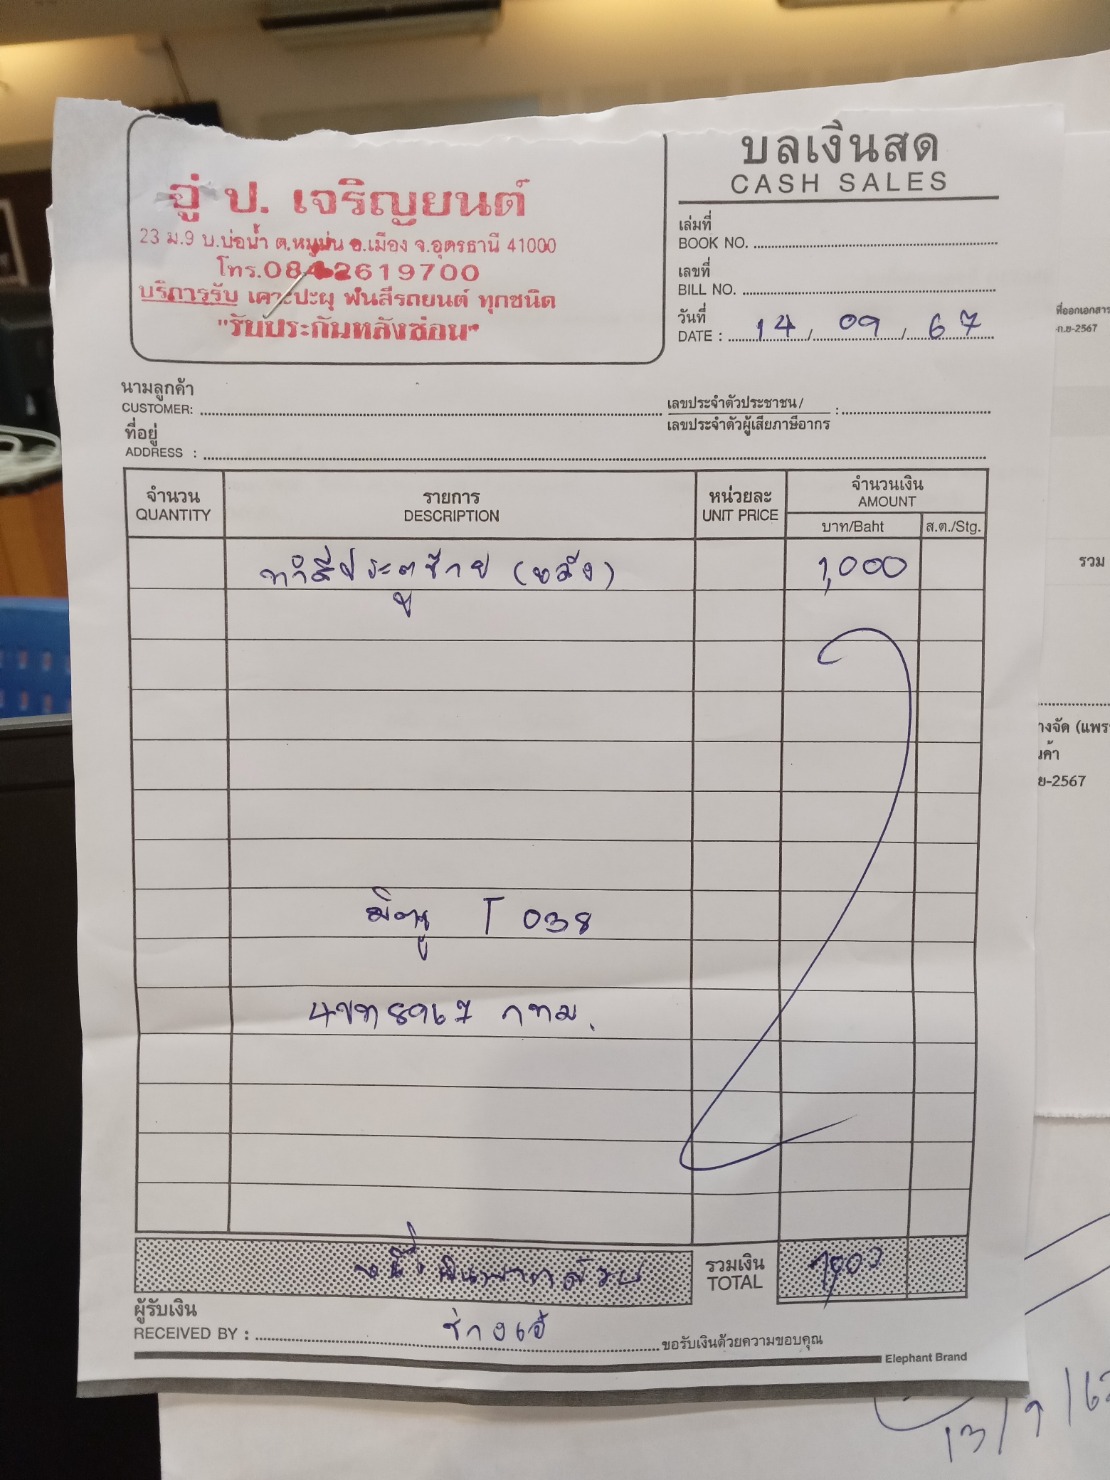 อู่ ป. เจริญยนต์
23 ม.9 บ.บ่อน้ำ ต.หมูม่น อ.เมือง จ.อุดรธานี 41000
โทร.0842619700
บริการรับ เคาะปะผุ พ่นสีรถยนต์ ทุกชนิด
"รับประกันหลังซ่อม"
บิลเงินสด
CASH SALES
เล่มที่
BOOK NO.
เลขที่
BILL NO.
วันที่
DATE : 14 / 09 / 67
นามลูกค้า
CUSTOMER:
เลขประจำตัวประชาชน/ :
เลขประจำตัวผู้เสียภาษีอากร
ที่อยู่
ADDRESS :
จำนวน
QUANTITY
รายการ
DESCRIPTION
หน่วยละ
UNIT PRICE
จำนวนเงิน
AMOUNT
บาท/Baht
ส.ต./Stg.
ทำสีประตูซ้าย (หลัง) 1,000
มิตซู T 038
4ขท8967 กทม.
หนึ่งพันบาทถ้วน
รวมเงิน
TOTAL
1,000
ผู้รับเงิน
RECEIVED BY : ช่างเอ้
ขอรับเงินด้วยความขอบคุณ
Elephant Brand
ที่ออกเอกสาร
ก.ย-2567
รวม
างจัด (แพร
ค้า
ย-2567
13/9/6